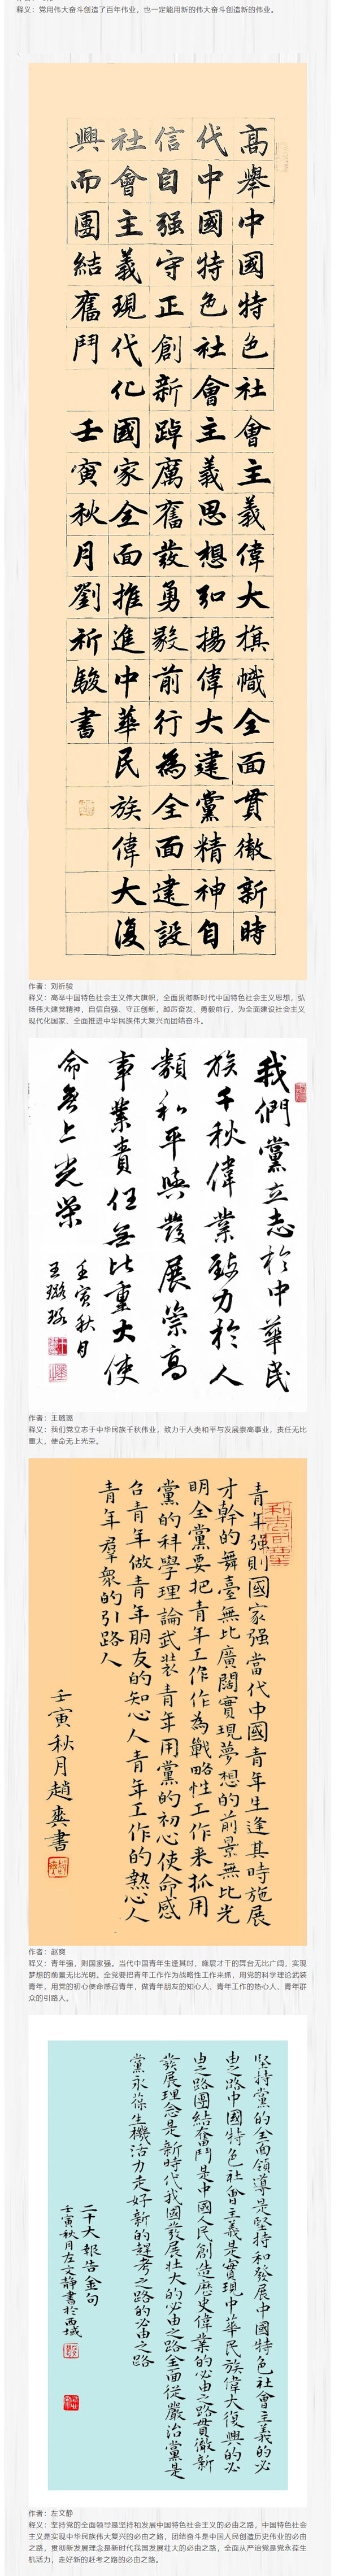 释义：党用伟大奋斗创造了百年伟业，也一定能用新的伟大奋斗创造新的伟业。
高舉中國特色社會主義偉大旗幟全面貫徹新時
代中國特色社會主義思想弘揚偉大建黨精神自
信自强守正創新踔厲奮發勇毅前行為全面建設
社會主義現代化國家全面推進中華民族偉大復
興而團結奮鬥 壬寅秋月劉祈駿書
作者：刘祈骏
释义：高举中国特色社会主义伟大旗帜，全面贯彻新时代中国特色社会主义思想，弘
扬伟大建党精神，自信自强、守正创新，踔厉奋发、勇毅前行，为全面建设社会主义
现代化国家、全面推进中华民族伟大复兴而团结奋斗。
我們黨立志於中華民
族千秋偉業致力於人
類和平與發展崇高
事業責任無比重大使
命無上光榮
壬寅秋月
王璐璐
作者：王璐璐
释义：我们党立志于中华民族千秋伟业，致力于人类和平与发展崇高事业，责任无比
重大，使命无上光荣。
青年强則國家强當代中國青年生逢其時施展
才幹的舞臺無比廣闊實現夢想的前景無比光
明全黨要把青年工作作為戰略性工作来抓用
黨的科學理論武装青年用黨的初心使命感
召青年做青年朋友的知心人青年工作的熱心人
青年羣衆的引路人
壬寅秋月趙爽書
作者：赵爽
释义：青年强，则国家强。当代中国青年生逢其时，施展才干的舞台无比广阔，实现
梦想的前景无比光明。全党要把青年工作作为战略性工作来抓，用党的科学理论武装
青年，用党的初心使命感召青年，做青年朋友的知心人、青年工作的热心人、青年群
众的引路人。
堅持黨的全面領導是堅持和發展中國特色社會主義的必
由之路中國特色社會主義是實現中華民族偉大復興的必
由之路團結奮鬥是中國人民創造歷史偉業的必由之路貫徹新
發展理念是新時代我國發展壮大的必由之路全面從嚴治黨是
黨永葆生機活力走好新的趕考之路的必由之路
二十大報告金句
壬寅秋月左文静書於西域
作者：左文静
释义：坚持党的全面领导是坚持和发展中国特色社会主义的必由之路，中国特色社会
主义是实现中华民族伟大复兴的必由之路，团结奋斗是中国人民创造历史伟业的必由
之路，贯彻新发展理念是新时代我国发展壮大的必由之路，全面从严治党是党永葆生
机活力，走好新的赶考之路的必由之路。